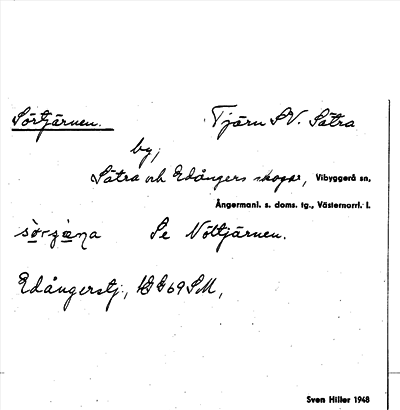 Sörtjärnen. Tjärn S.V. Sätra
by,
Sätra och Edångers skogar, Vibyggerå sn,
Ångermanl. s. doms. tg., Västernorrl. l.
Se Nöttjärnen.
Edångerstj.,
Sven Hiller 1948